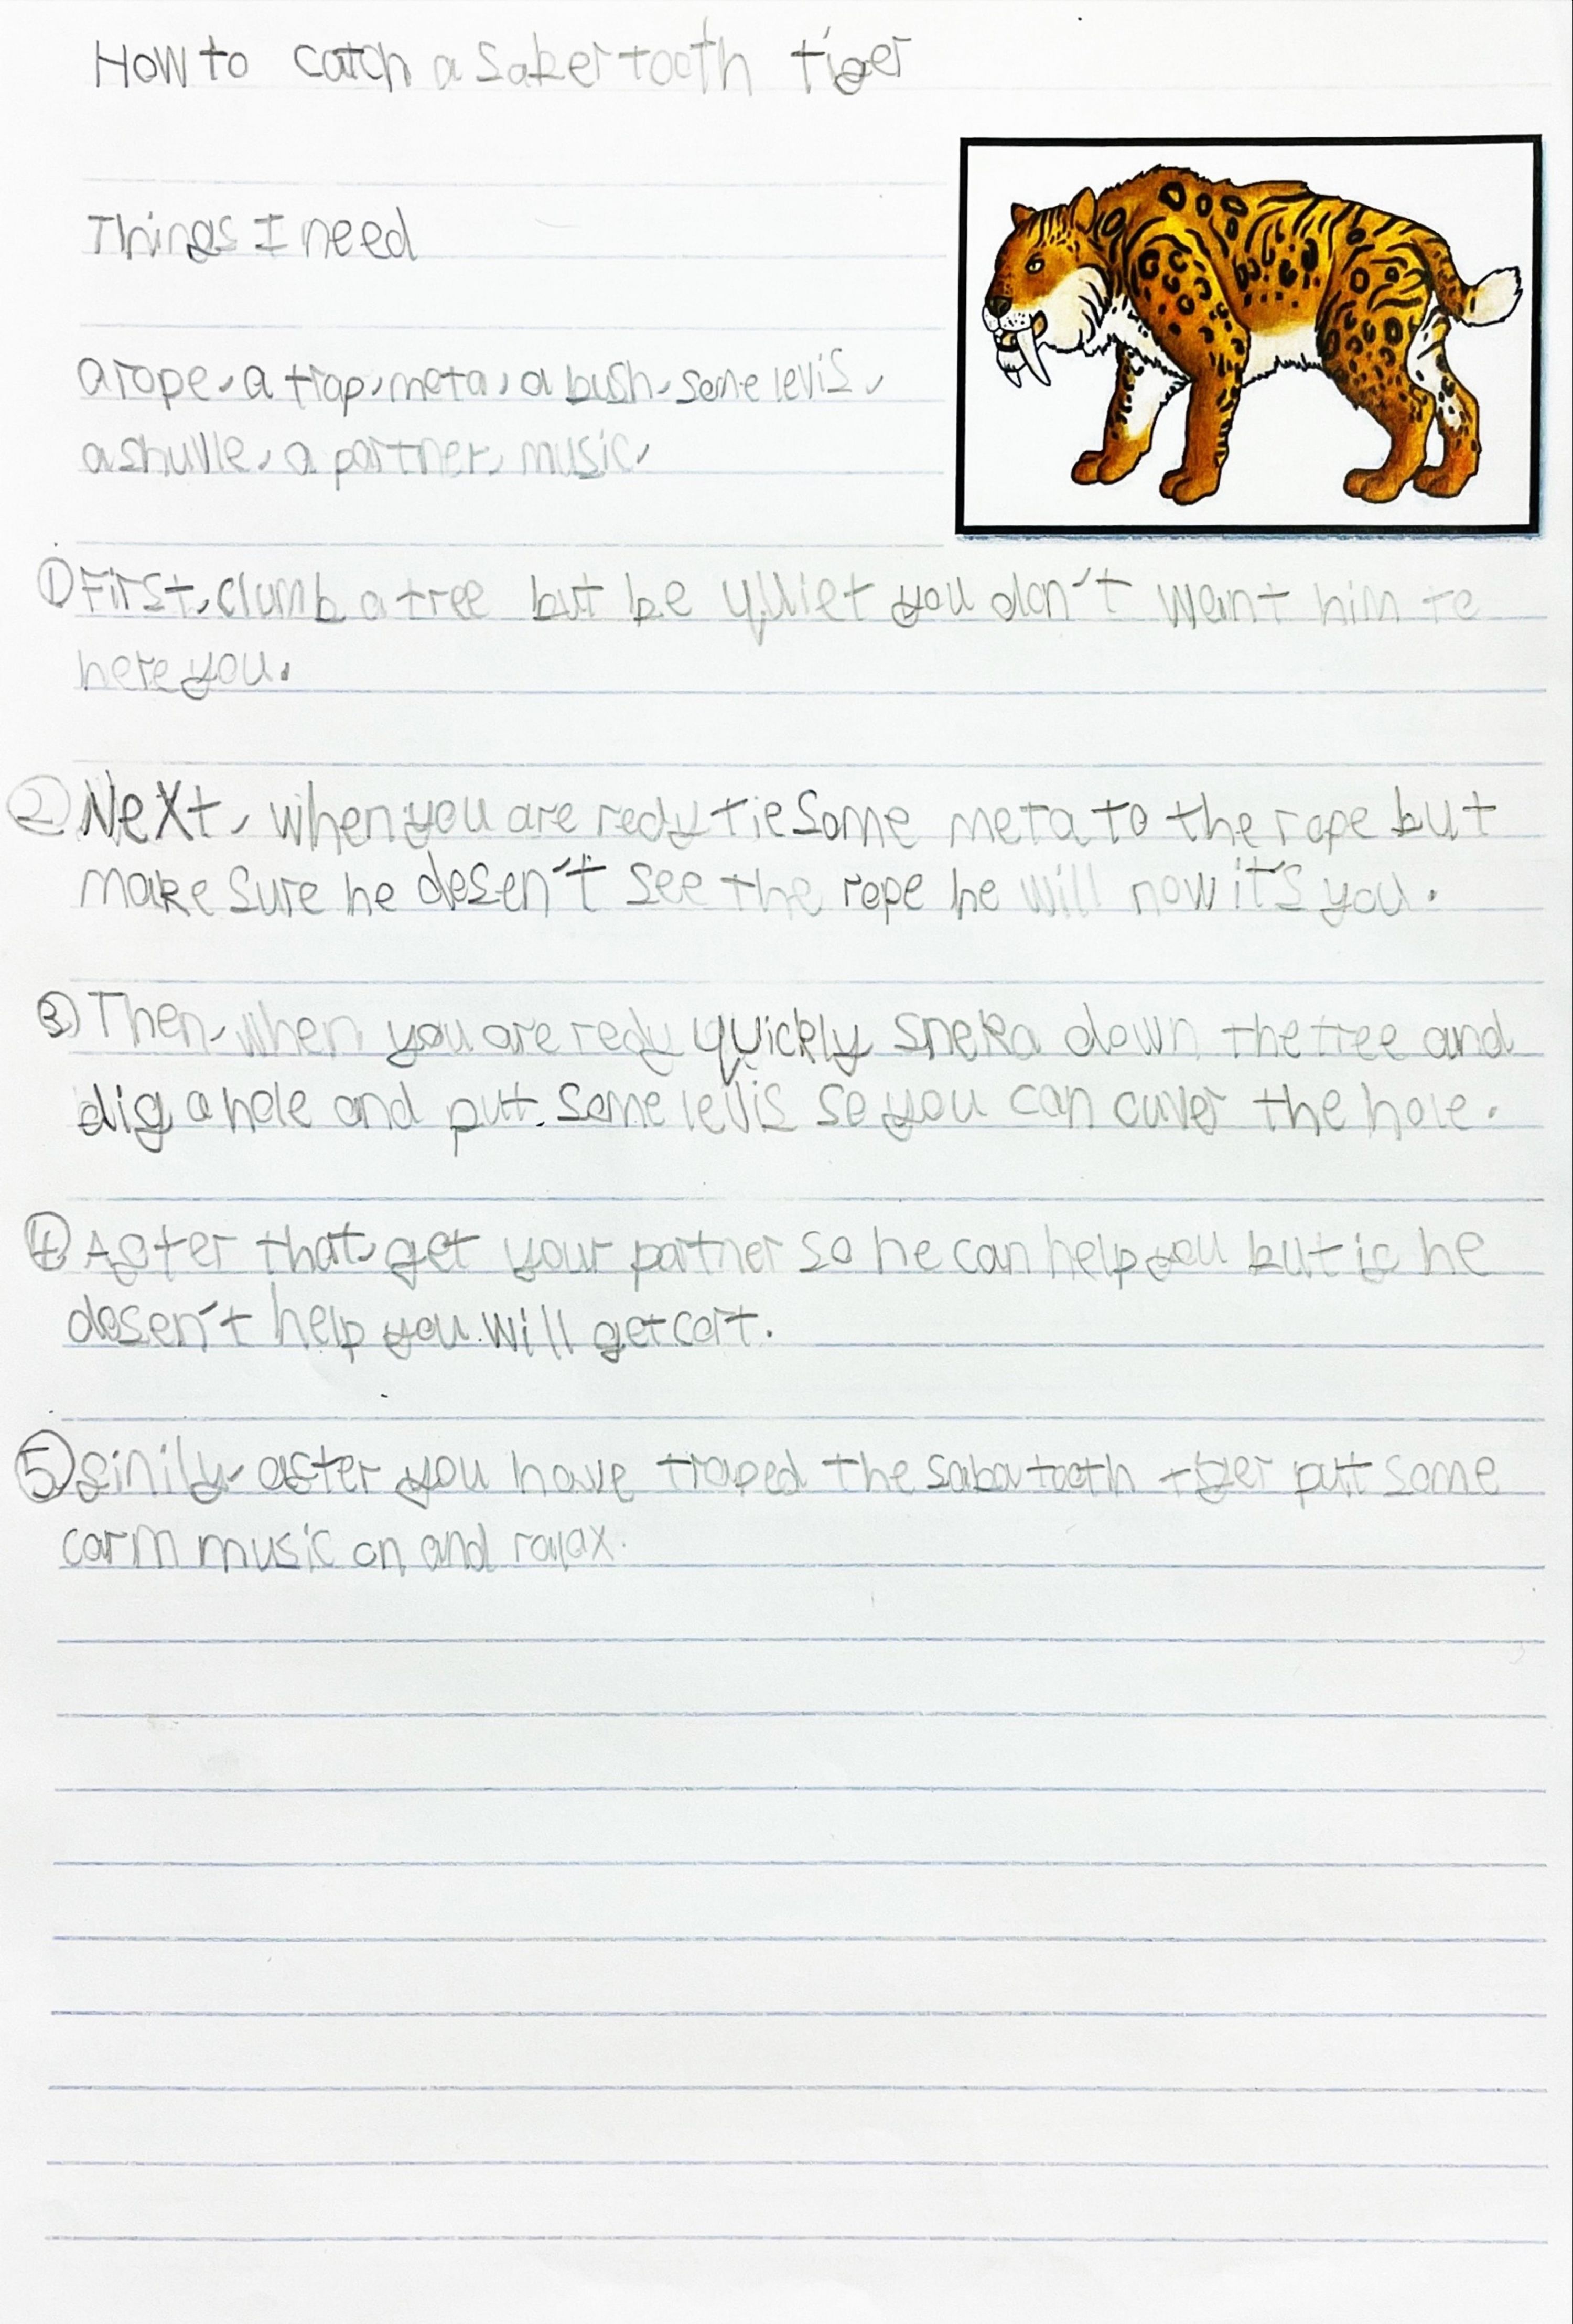 How to catch a saber tooth tiger
Things I need
a rope, a trap, meta, a bush, some levis,
a shuvle, a partner, music,
① First, clumb a tree but be quiet you don't want him to
here you.
② Next, when you are redy tie some meta to the rope but
make sure he desen't see the rope he will now it's you.
③ Then, when you are redy quickly sneka down the tree and
dig a hole and putt some levis so you can cuver the hole.
④ After that, get your partner so he can help you but if he
desen't help you will get cort.
⑤ finily, after you have traped the saba tooth tiger putt some
carm music on and ralax.